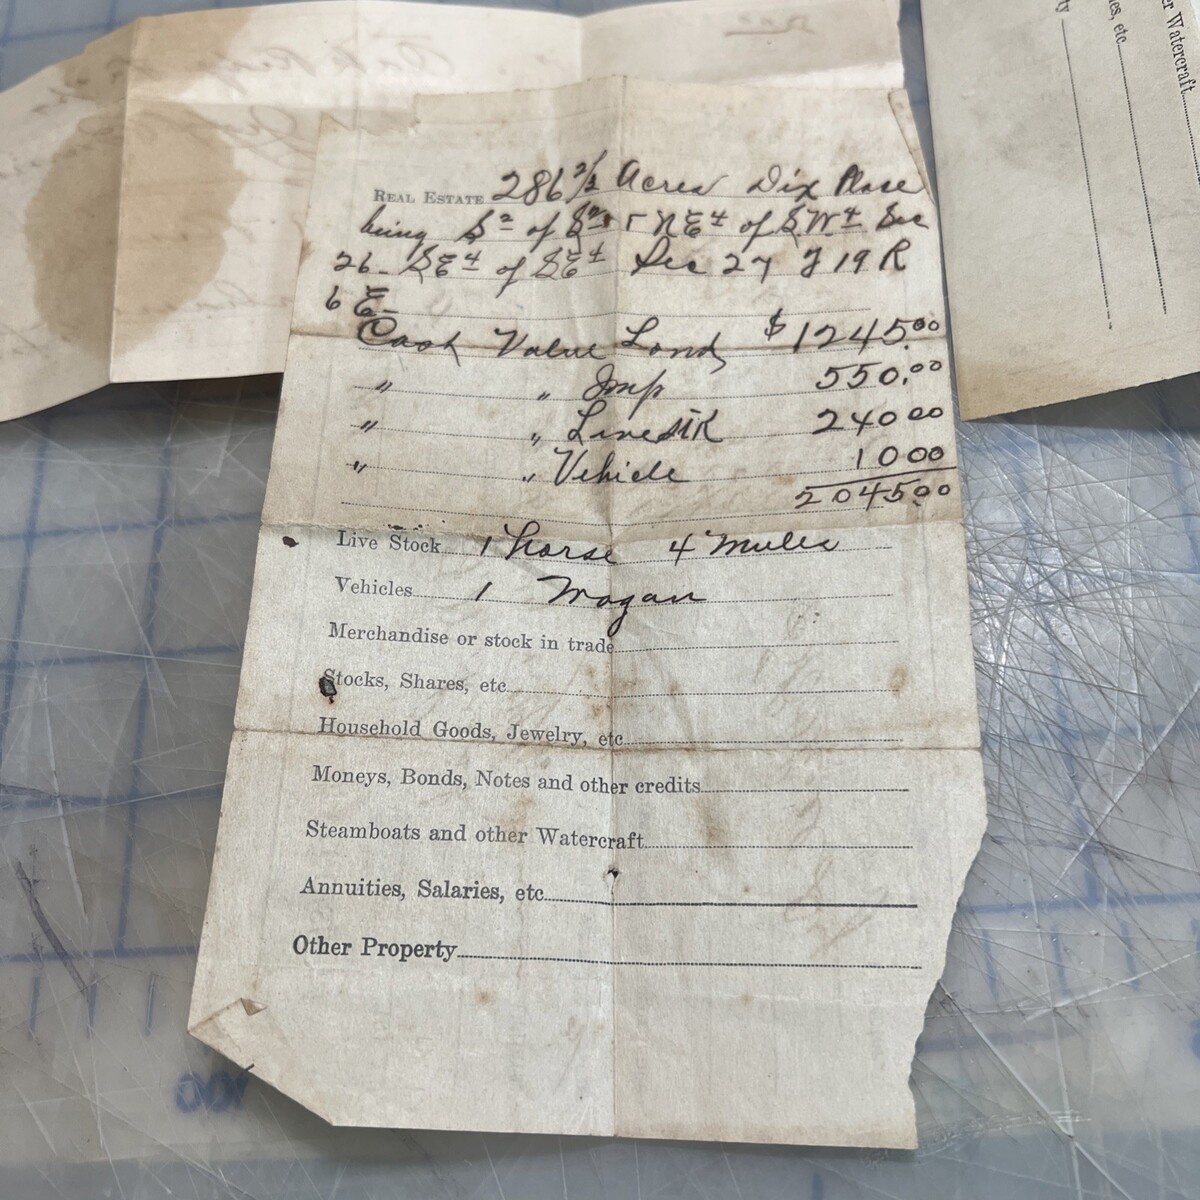 REAL ESTATE 286 2/2 Acres Dix Place
being S 2 of S 2 & NE 4 of SW 4 Sec
26 - SE 4 of SE 4 Sec 27 T 19 R
6 E -
Cash Value Land $1245.00
" " Imp 550.00
" " LiveStk 240 00
" " Vehicle 10 00
2045 00
Live Stock 1 horse 4 mules
Vehicles 1 Wagan
Merchandise or stock in trade
Stocks, Shares, etc
Household Goods, Jewelry, etc
Moneys, Bonds, Notes and other credits
Steamboats and other Watercraft
Annuities, Salaries, etc
Other Property
er Watercraft
es, etc
ty
100